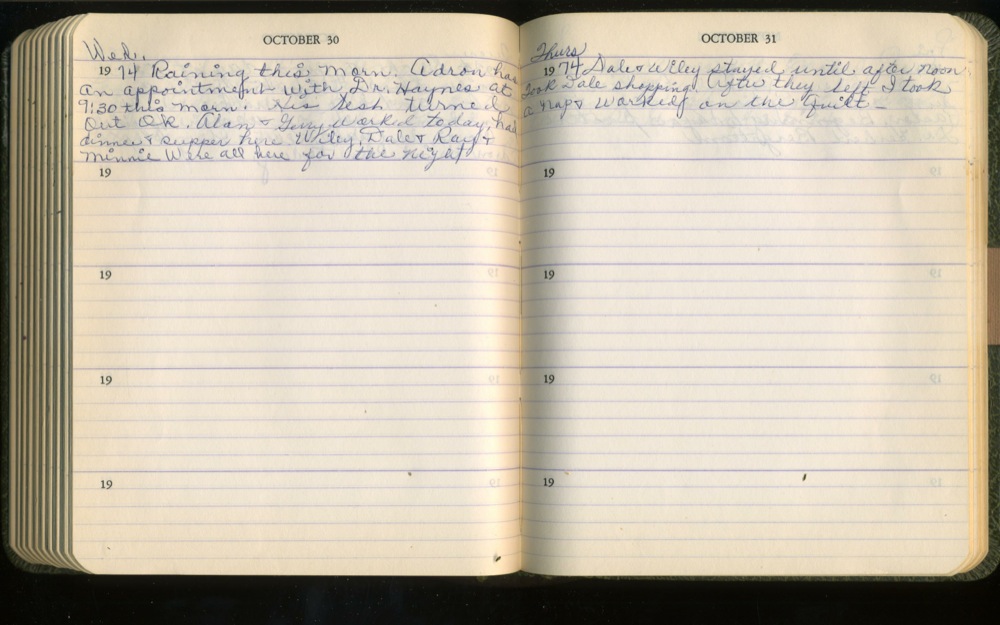 OCTOBER 30
Wed.
1974 Raining this morn. Adron has
an appointment with Dr. Haynes at
9:30 this morn. His test turned
out OK. Alan & Gary worked today, had
dinner & supper here Wiley, Dale & Ray &
Minnie were all here for the night
19
19
19
19
OCTOBER 31
Thurs
1974 Dale & Wiley stayed until after noon
took Dale shopping. After they left I took
a nap & worked on the Quilt -
19
19
19
19